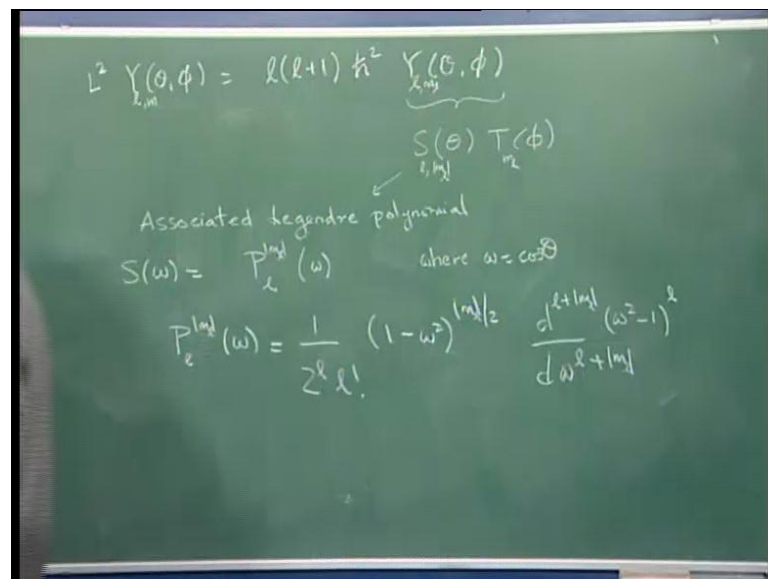 L² Y_{l,m}(θ,φ) = l(l+1) ħ² Y_{l,m_l}(θ,φ)
S_{l,|m_l|}(θ) T_{m_l}(φ)
Associated Legendre polynomial
S(ω) = P_l^{|m_l|}(ω) where ω = cosθ
P_l^{|m_l|}(ω) = 1/(2^l l!) (1-ω²)^{|m_l|/2} d^{l+|m_l|}/dω^{l+|m_l|} (ω²-1)^l